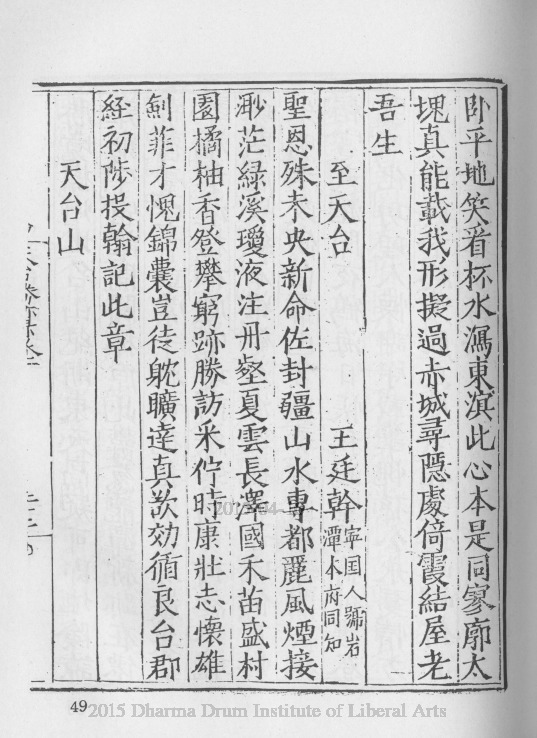 卧平地笑看杯水瀉東濵此心本是同寥廓太
塊真能載我形擬過赤城尋隱處倚霞結屋老
吾生
至天台 王廷幹 寧国人號岩
潭本府同知
聖恩殊未央新命佐封疆山水專都麗風煙接
渺茫緑溪瓊液注丹壑夏雲長澤國禾苗盛村
園橘柚香登攀窮跡勝訪采佇時康壯志懷雄
劍菲才愧錦囊豈徒躭曠達真欲効循良台郡
経初陟投翰記此章
天台山
49
2015 Dharma Drum Institute of Liberal Arts